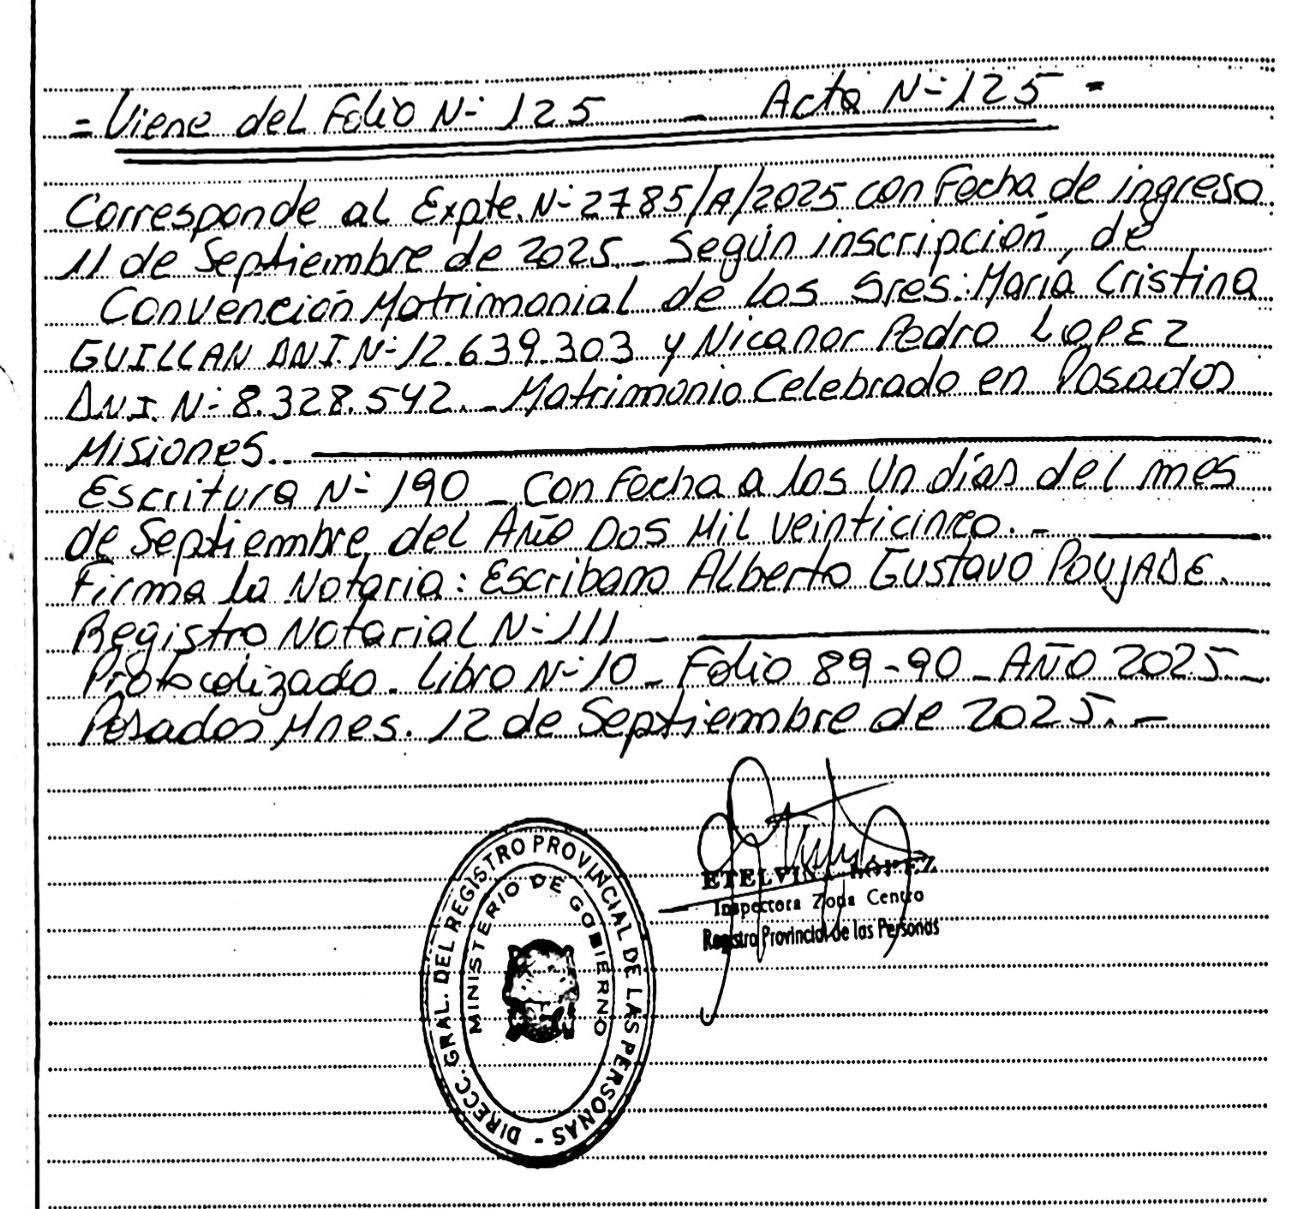 = Viene del Folio N° 125 - Acta N° 125 =
Corresponde al Expte. N° 2785/A/2025 con Fecha de ingreso
11 de Septiembre de 2025 - Según inscripción de
Convención Matrimonial de los Sres: María Cristina
GUILLAN DNI. N° 12.639.303 y Nicanor Pedro LOPEZ
DNI. N° 8.328.542. - Matrimonio Celebrado en Posadas
Misiones.
Escritura N° 190 - Con Fecha a los Un días del mes
de Septiembre del Año Dos Mil veinticinco. -
Firma la Notaria: Escribano Alberto Gustavo POUJADE.
Registro Notarial N° 111 -
Protocolizado. Libro N° 10 - Folio 89-90 - AÑO 2025 -
Posadas Mnes. 12 de Septiembre de 2025. -
ETELVINA LOPEZ
Inspectora Zona Centro
Registro Provincial de las Personas
DIRECC. GRAL. DEL REGISTRO PROVINCIAL DE LAS PERSONAS -
MINISTERIO DE GOBIERNO